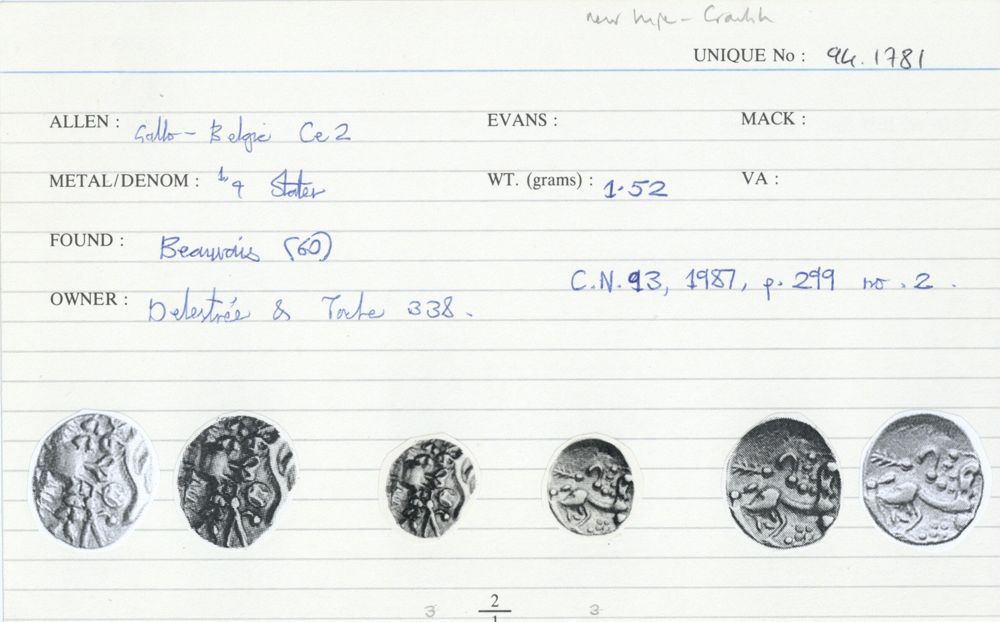 new type -
UNIQUE No : 94.1781
ALLEN : Gallo-Belgic Ce2 EVANS : MACK :
METAL/DENOM : ¼ Stater WT. (grams) : 1.52 VA :
FOUND : Beauvais (60)
C.N. 93, 1987, p. 299 no. 2.
OWNER : Delestrée & Tache 338.
3 2 3
1